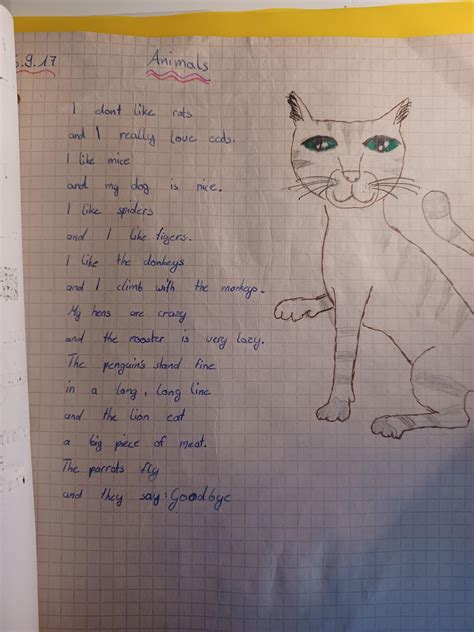 5.9.17
Animals
I dont like rats
and I really love cats.
I like mice
and my dog is nice.
I like spiders
and I like tigers.
I like the donkeys
and I climb with the monkeys.
My hens are crazy
and the rooster is very lazy.
The penguin's stand fine
in a long, long line
and the lion eat
a big piece of meat.
The parrots fly
and they say: Goodbye